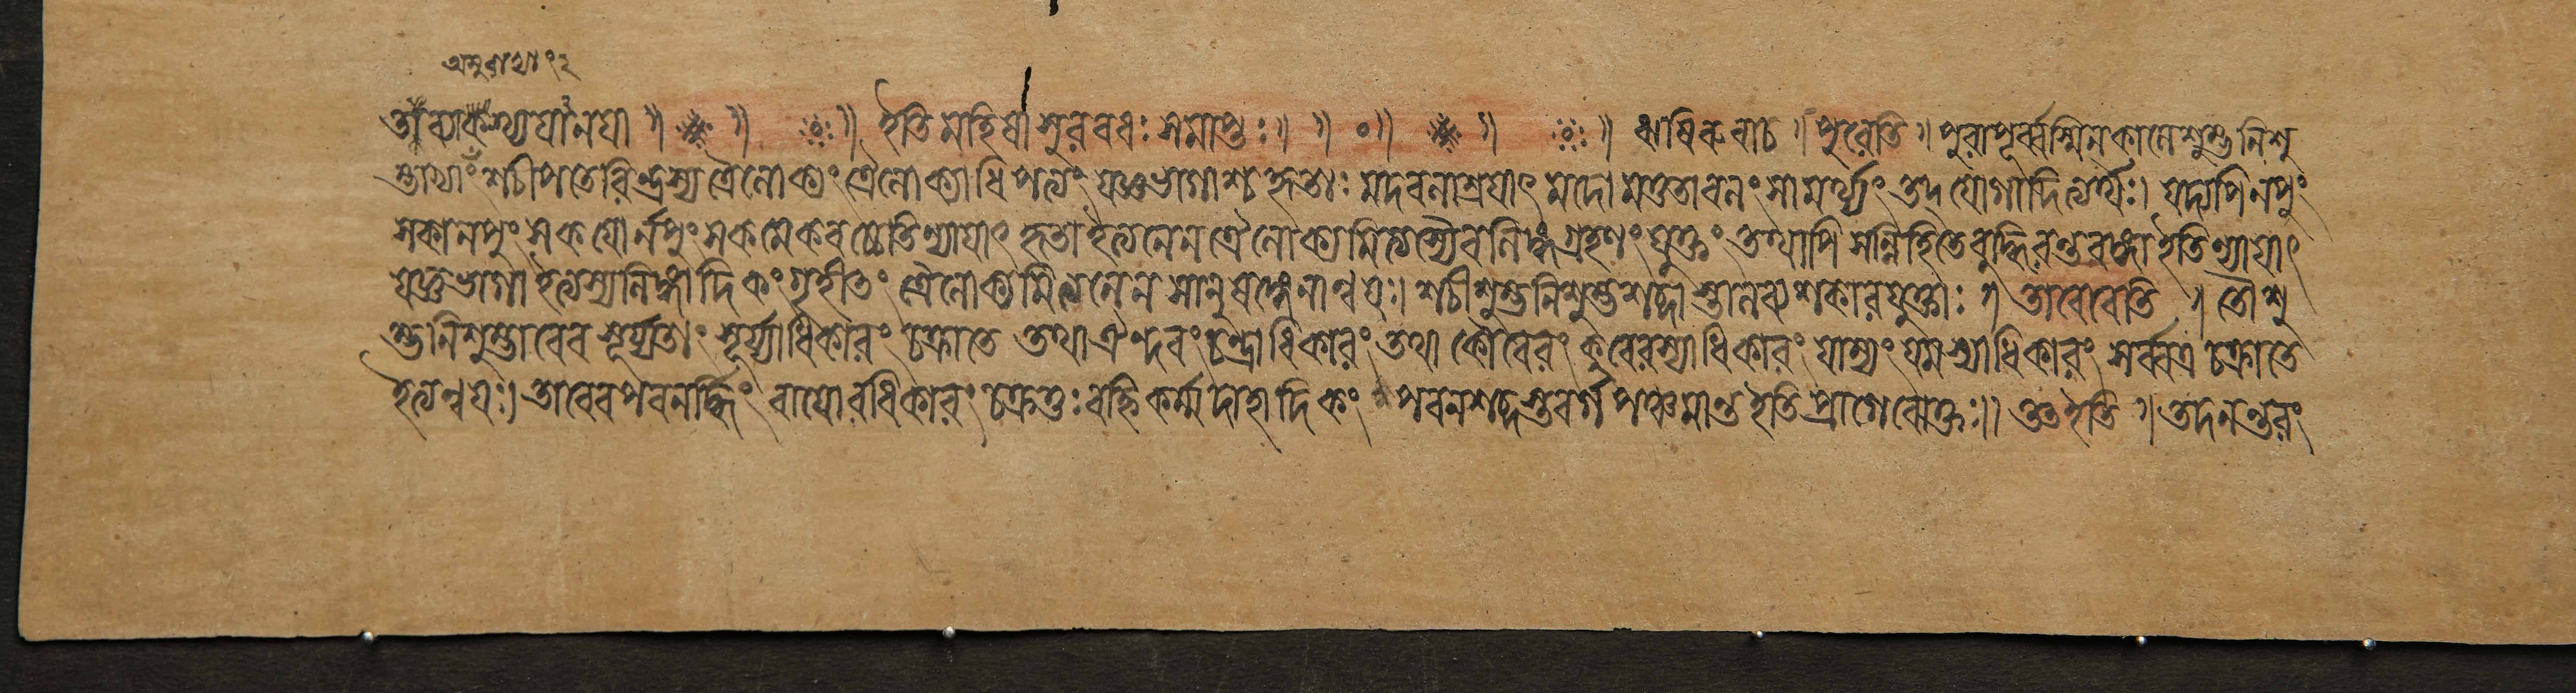 তাং ব্যাকখ্যাযানযা ॥ ॥ ॥ ইতি মহিষাসুরবধঃ সমাপ্তঃ॥ ॥ ০॥ ॥ ॥ ঋষিরুবাচ ॥ পুরেতি ॥ পুরাপূর্ব্বস্মিনকালে শুম্ভনিশু
ম্ভাভ্যাং শচীপতেরিন্দ্রস্য ত্রৈলোক্যং ত্রৈলোক্যাধিপত্যং যজ্ঞভাগাশ্চ হৃতাঃ মদবলাশ্রযাৎ মদো মত্ততা বলং সামর্থ্যং তদ্ যোগাদিত্যর্থঃ। যদ্যপি নপুং
সকানপুং সকযোর্নপুং সকমেকবচ্চেতিন্যাযাৎ হৃতা ইত্যনেন ত্রৈলোক্যমিত্যস্যৈব লিঙ্গগ্রহণং যুক্তং তথাপি সন্নিহিতে বুদ্ধিরন্তরঙ্গা ইতি ন্যাযাৎ
যজ্ঞভাগা ইত্যস্য লিঙ্গাদিকং গৃহীতং ত্রৈলোক্যমিত্যনেন সানুষঙ্গেনান্বযঃ। শচীশুম্ভনিশুম্ভশব্দাস্তালব্যশকারযুক্তাঃ ॥ তাবেবেতি ॥ তৌ শু
ম্ভনিশুম্ভাবেব সূর্য্যতাং সূর্য্যাধিকারং চক্রাতে তথা ঐন্দবং চন্দ্রাধিকারং তথা কৌবেরং কুবেরস্যাধিকারং যাম্যং যমস্যাধিকারং সর্ব্বত্র চক্রাতে
ইত্যন্বযঃ। তাবেব পবনর্দ্ধিং বাযোরধিকারং চক্রতুঃ বহ্নিকর্ম্ম দাহাদিকং পবনশব্দস্তবর্গপঞ্চমান্ত ইতি প্রাগেবোক্তঃ॥ তত ইতি ॥ তদনন্তরং